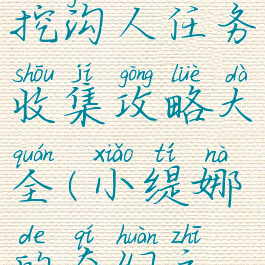 挖沟人任务
shōu jí gōng lüè dà
收集攻略大
quán xiǎo tí nà
全(小缇娜
de qí huàn zhī
的奇幻之